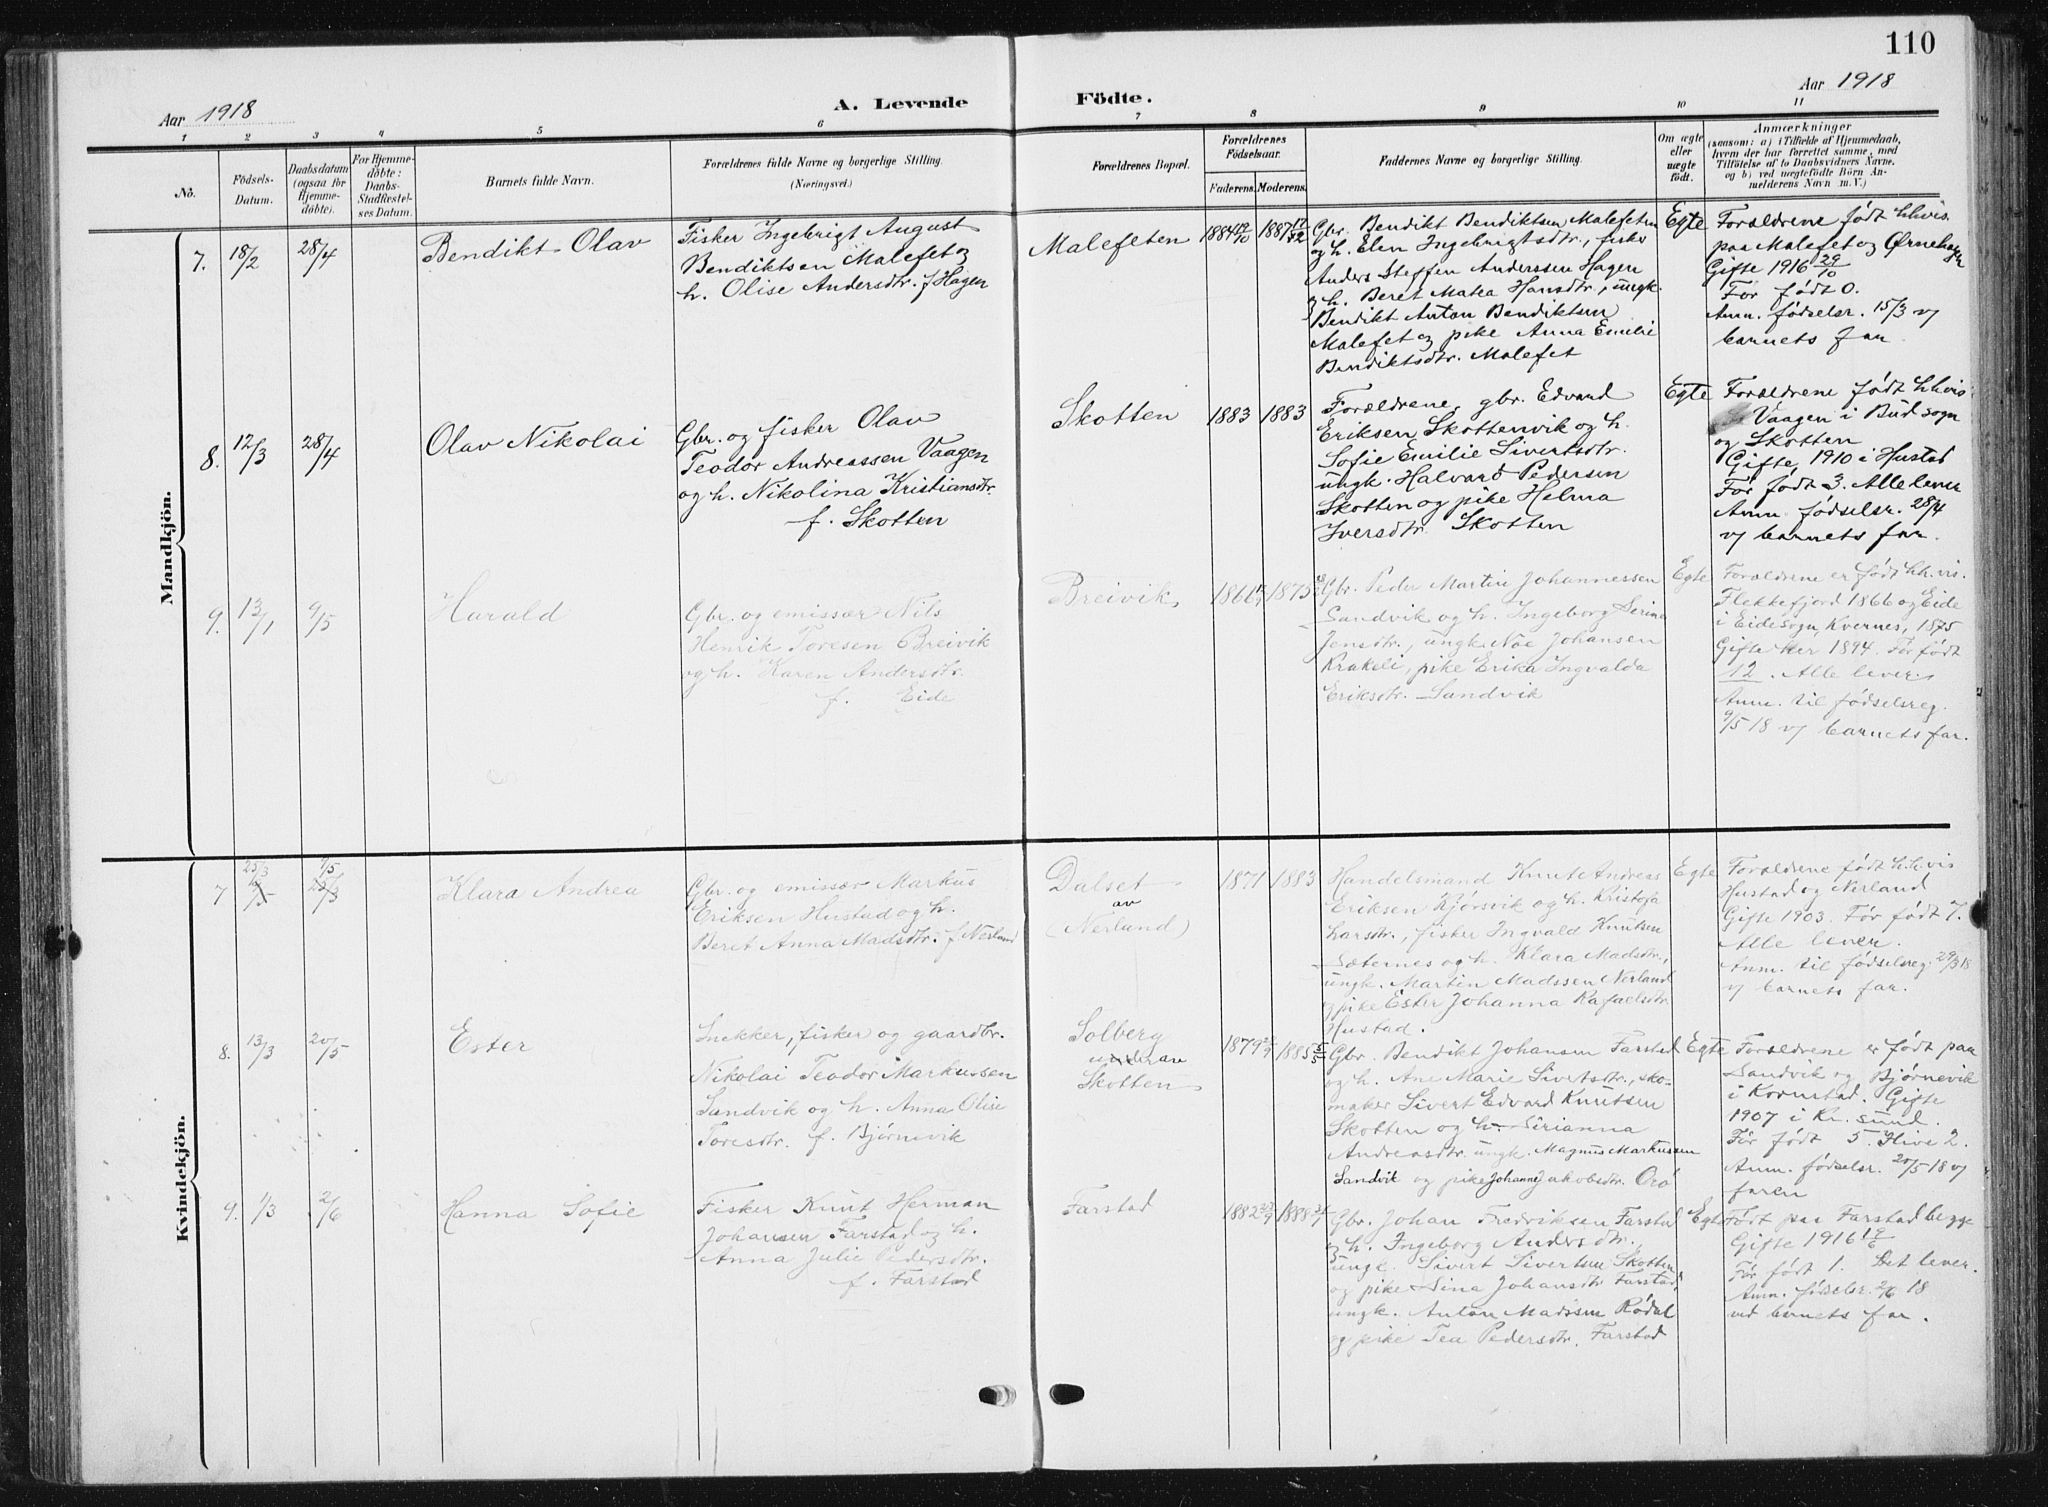 110
Aar 1918
A. Levende Födte.
Aar 1918
1 2 3 4 5 6 7 8 9 10 11
No.
Födsels-
Datum.
Daabsdatum
(ogsaa for
Hjemme-
döbte).
For Hjemme-
döbte:
Daabs-
Stadfæstel-
ses Datum.
Barnets fulde Navn.
Forældrenes fulde Navne og borgerlige Stilling.
(Næringsvei.)
Forældrenes Bopæl.
Forældrenes
Födselsaar.
Faderens. Moderens.
Faddernes Navne og borgerlige Stilling.
Om ægte
eller
uægte
födt.
Anmærkninger
(saasom: a) i Tilfælde af Hjemmedaab,
hvem der har forrettet samme, med
Tilföielse af to Daabsvidners Navne.
og b) ved uægtefödte Börn An-
melderens Navn m. V.)
Mandkjön.
7. 18/2 28/4 Bendikt Olav
Fisker Ingebrigt August
Bendiktsen Malefet og
h. Olise Andersdtr. f Hagen
Malefeten
1884 1887
Gbr. Bendikt Bendiktsen Malefeten
og h. Elen Ingebrigtsdtr., fisker
Anders Steffen Anderssen Hagen
og h. Beret Matea Hansdtr., ungk.
Bendikt Anton Bendiktsen
Malefet og pike Anna Emilie
Bendiktsdtr. Malefet
Egte
Foræeldrene født hhvis.
paa Malefet og Ørnehagen
Gifte 1916 29/10
Før født 0.
Anm. fødselsr. 15/3 v/
barnets far.
8. 12/3 28/4 Olav Nikolai
Gbr. og fisker Olav
Teodor Andreassen Vaagen
og h. Nikolina Kristiansdtr.
f. Skotten
Skotten
1883 1883
Foræeldrene, gbr. Edvard
Eriksen Skottenvik og h.
Sofie Emilie Sivertsdtr.
ungk. Halvard Pedersen
Skotten og pike Helma
Iversdtr. Skotten
Egte
Foræeldrene født hhvis
Vaagen i Bud sogn
og Skotten
Gifte 1910 i Hustad
Før født 3. Alle lever
Anm. fødselsr. 28/4
v/ barnets far.
9. 13/1 9/5 Harald
Gbr. og emissær Nils
Henrik Toresen Breivik
og h. Karen Andersdtr.
f. Eide
Breivik
1866 1875
Gbr. Peder Martin Johannessen
Sandvik og h. Ingeborg Serina
Jensdtr., ungk. Noe Johansen
Krakeli, pike Erika Ingvalda
Eriksdtr. Sandvik
Egte
Foræeldrene er født hh.vis.
Flekkefjord 1866 og Eide
i Eide sogn, Kvernes, 1875
Gifte her 1894. Før født
12. Alle lever.
Anm. til fødselsreg.
9/5 18 v/ barnets far.
Kvindekjön.
7 25/3 9/5 25/3 Klara Andrea
Gbr. og emissær Markus
Eriksen Hustad og h.
Beret Anna Madsdtr. f Nerland
Dalset
av
(Nerland)
1871 1883
Handelsmand Knut Andreas
Eriksen Kjørsvik og h. Kristofa
Larsdtr., fisker Ingvald Knutsen
Sæternes og h. Klara Madsdtr.,
ungk. Martin Madssen Nerland
og pike Ester Johanna Rafaelsdtr.
Hustad.
Egte
Foræeldrene født h.hvis
Hustad og Nerland
Gifte 1903. Før født 7.
Alle lever.
Anm. til fødselsreg. 29/3 18
v/ barnets far.
8. 13/3 20/5 Ester
Snekker, fisker og gaardbr.
Nikolai Teodor Markussen
Sandvik og h. Anna Olise
Toresdtr. f. Bjørnevik
Solberg
Skotten
1879 1885
Gbr. Bendikt Johansen Farstad
og h. Ane Marie Sivertsdtr., sko-
maker Sivert Edvard Knutsen
Skotten og h. Sirianna
Andreasdtr. ungk. Magnus Markussen
Sandvik og pike Johanne Jakobsdtr. Orø
Egte
Foræeldrene er født paa
Sandvik og Bjørnevik
i Kornstad. Gifte
1907 i Kr. sund.
Før født 5. Ilive 2.
Anm. fødselsr. 20/5 18 v/
faren
9. 1/3 2/6 Hanna Sofie
Fisker Knut Herman
Johansen Farstad og h.
Anna Julie Pedersdtr.
f. Farstad
Farstad
1882 1888
Gbr. Johan Fredriksen Farstad
og h. Ingeborg Andersdtr.,
ungk. Sivert Sivertsen Skotten
og pike Sina Johansdtr Farstad,
ungk. Anton Madssen Rødal
og pike Tea Pedersdtr. Farstad
Egte
Født paa Farstad begge
Gifte 1916
Før født 1. Det lever.
Anm. fødselsr. 2/6 18
ved barnets far.